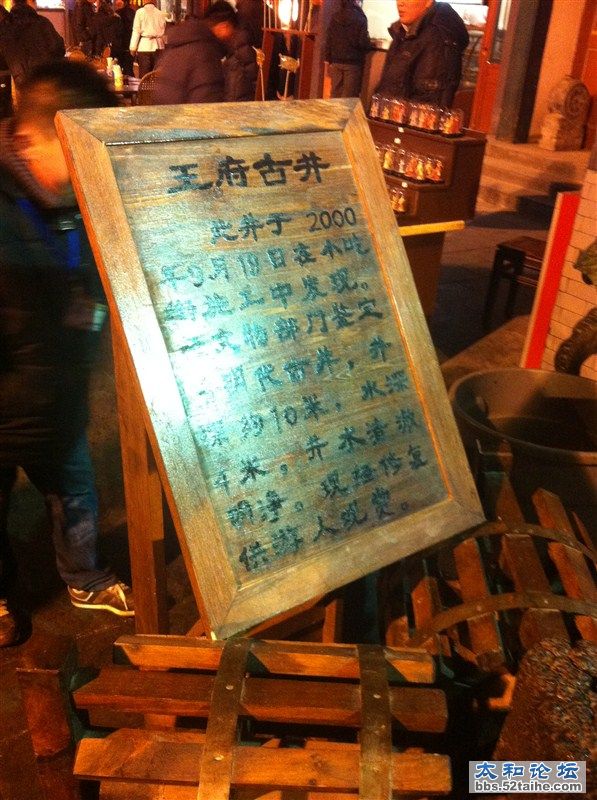 王府古井
此井于 2000
年9月19日在小吃
街施工中发现。
文物部门鉴定
明代古井，井
深约10米，水深
米，井水清澈
明净。现经修复
供游人观赏。
太和论坛
bbs.52taihe.com